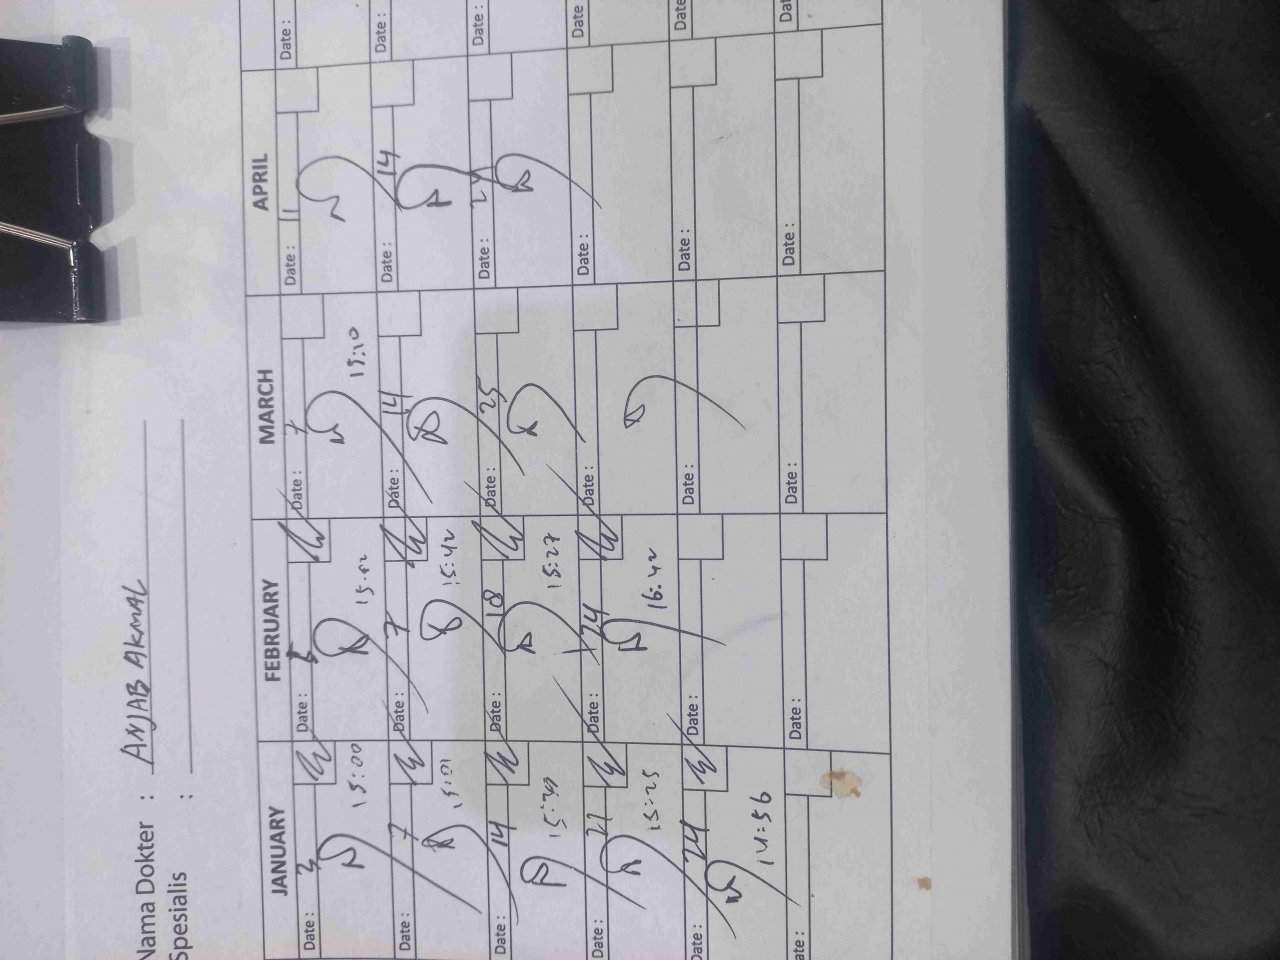 Nama Dokter : ANJAB AKMAL
Spesialis :
JANUARY FEBRUARY MARCH APRIL
Date : 3 Date : 5 Date : 7 Date : 11 Date :
15:00 15:02 15:10
Date : 7 Date : 7 Date : 14 Date : 14 Date :
15:01 15:42
Date : 14 Date : 18 Date : 25 Date : Date :
15:27
Date : 21 Date : 24 Date : Date : Date
15:25 16:42
Date : 24 Date : Date : Date : Date
14:56
ate : Date : Date : Date : Dat